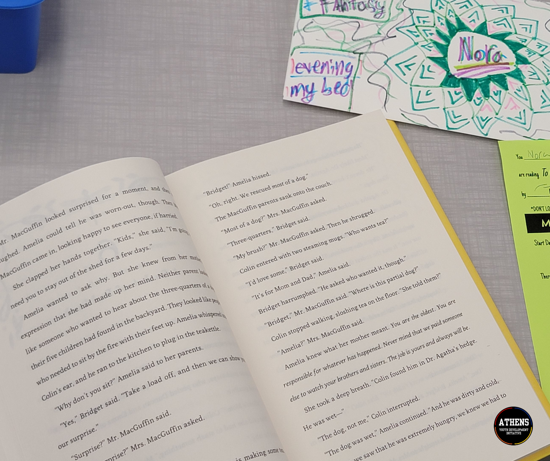 # Fantasy
evening
my bed
Nora
You Nora
are reading To
by
M
Start Da
Ther
Mr. MacGuffin looked surprised for a moment, and then
ughed. Amelia could tell he was worn-out, though. The
MacGuffin came in, looking happy to see everyone, if harried.
She clapped her hands together. "Kids," she said, "I'm go
need you to stay out of the shed for a few days."
Amelia wanted to ask why. But she knew from her mo
expression that she had made up her mind. Neither parent
like someone who wanted to hear about the three-quarters of
their five children had found in the backyard. They looked like peo
who needed to sit by the fire with their feet up. Amelia whispered
Colin's ear, and he ran to the kitchen to plug in the teakettle.
"Why don't you sit?" Amelia said to her parents.
"Yes," Bridget said. "Take a load off, and then we can show
our surprise."
"Surprise?" Mr. MacGuffin said.
"Surprise?" Mrs. MacGuffin asked.
"Bridget!" Amelia hissed.
"Oh, right. We rescued most of a dog."
The MacGuffin parents sank onto the couch.
"Most of a dog?" Mrs. MacGuffin asked.
"Three-quarters," Bridget said.
"My brush?" Mr. MacGuffin asked. Then he shrugged.
Colin entered with two steaming mugs. "Who wants tea?"
"I'd love some," Bridget said.
"It's for Mom and Dad," Amelia said.
Bridget harrumphed. "He asked who wanted it, though."
"Bridget," Mr. MacGuffin said. "Where is this partial dog?"
Colin stopped walking, sloshing tea on the floor. "She told them?"
"Amelia?" Mrs. MacGuffin said.
Amelia knew what her mother meant. You are the oldest. You are
responsible for whatever has happened. Never mind that we paid someone
else to watch your brothers and sisters. The job is yours and always will be
She took a deep breath. "Colin found him in Dr. Agatha's hedge.
He was wet—"
"The dog, not me," Colin interrupted.
"The dog was wet," Amelia continued. "And he was dirty and cold,
we saw that he was extremely hungry, we knew we had to
ATHENS
YOUTH DEVELOPMENT
INITIATIVE